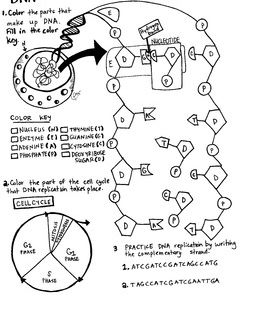 DNA
1. Color the parts that
make up DNA.
Fill in the color
key.
NUCLEOTIDE
COLOR KEY
NUCLEUS (N)
THYMINE (T)
ENZYME (E)
GUANINE (G)
ADENINE (A)
CYTOSINE (C)
PHOSPHATE (P)
DEOXYRIBOSE
SUGAR (D)
2. Color the part of the cell cycle
that DNA replication takes place.
CELL CYCLE
MITOSIS
G2
PHASE
G1
PHASE
S
PHASE
3 PRACTICE DNA replication by writing
the complementary strand.
1. ATCGATCCGATCAGCCATG
2. TAGCCATCGATCGAATTGA